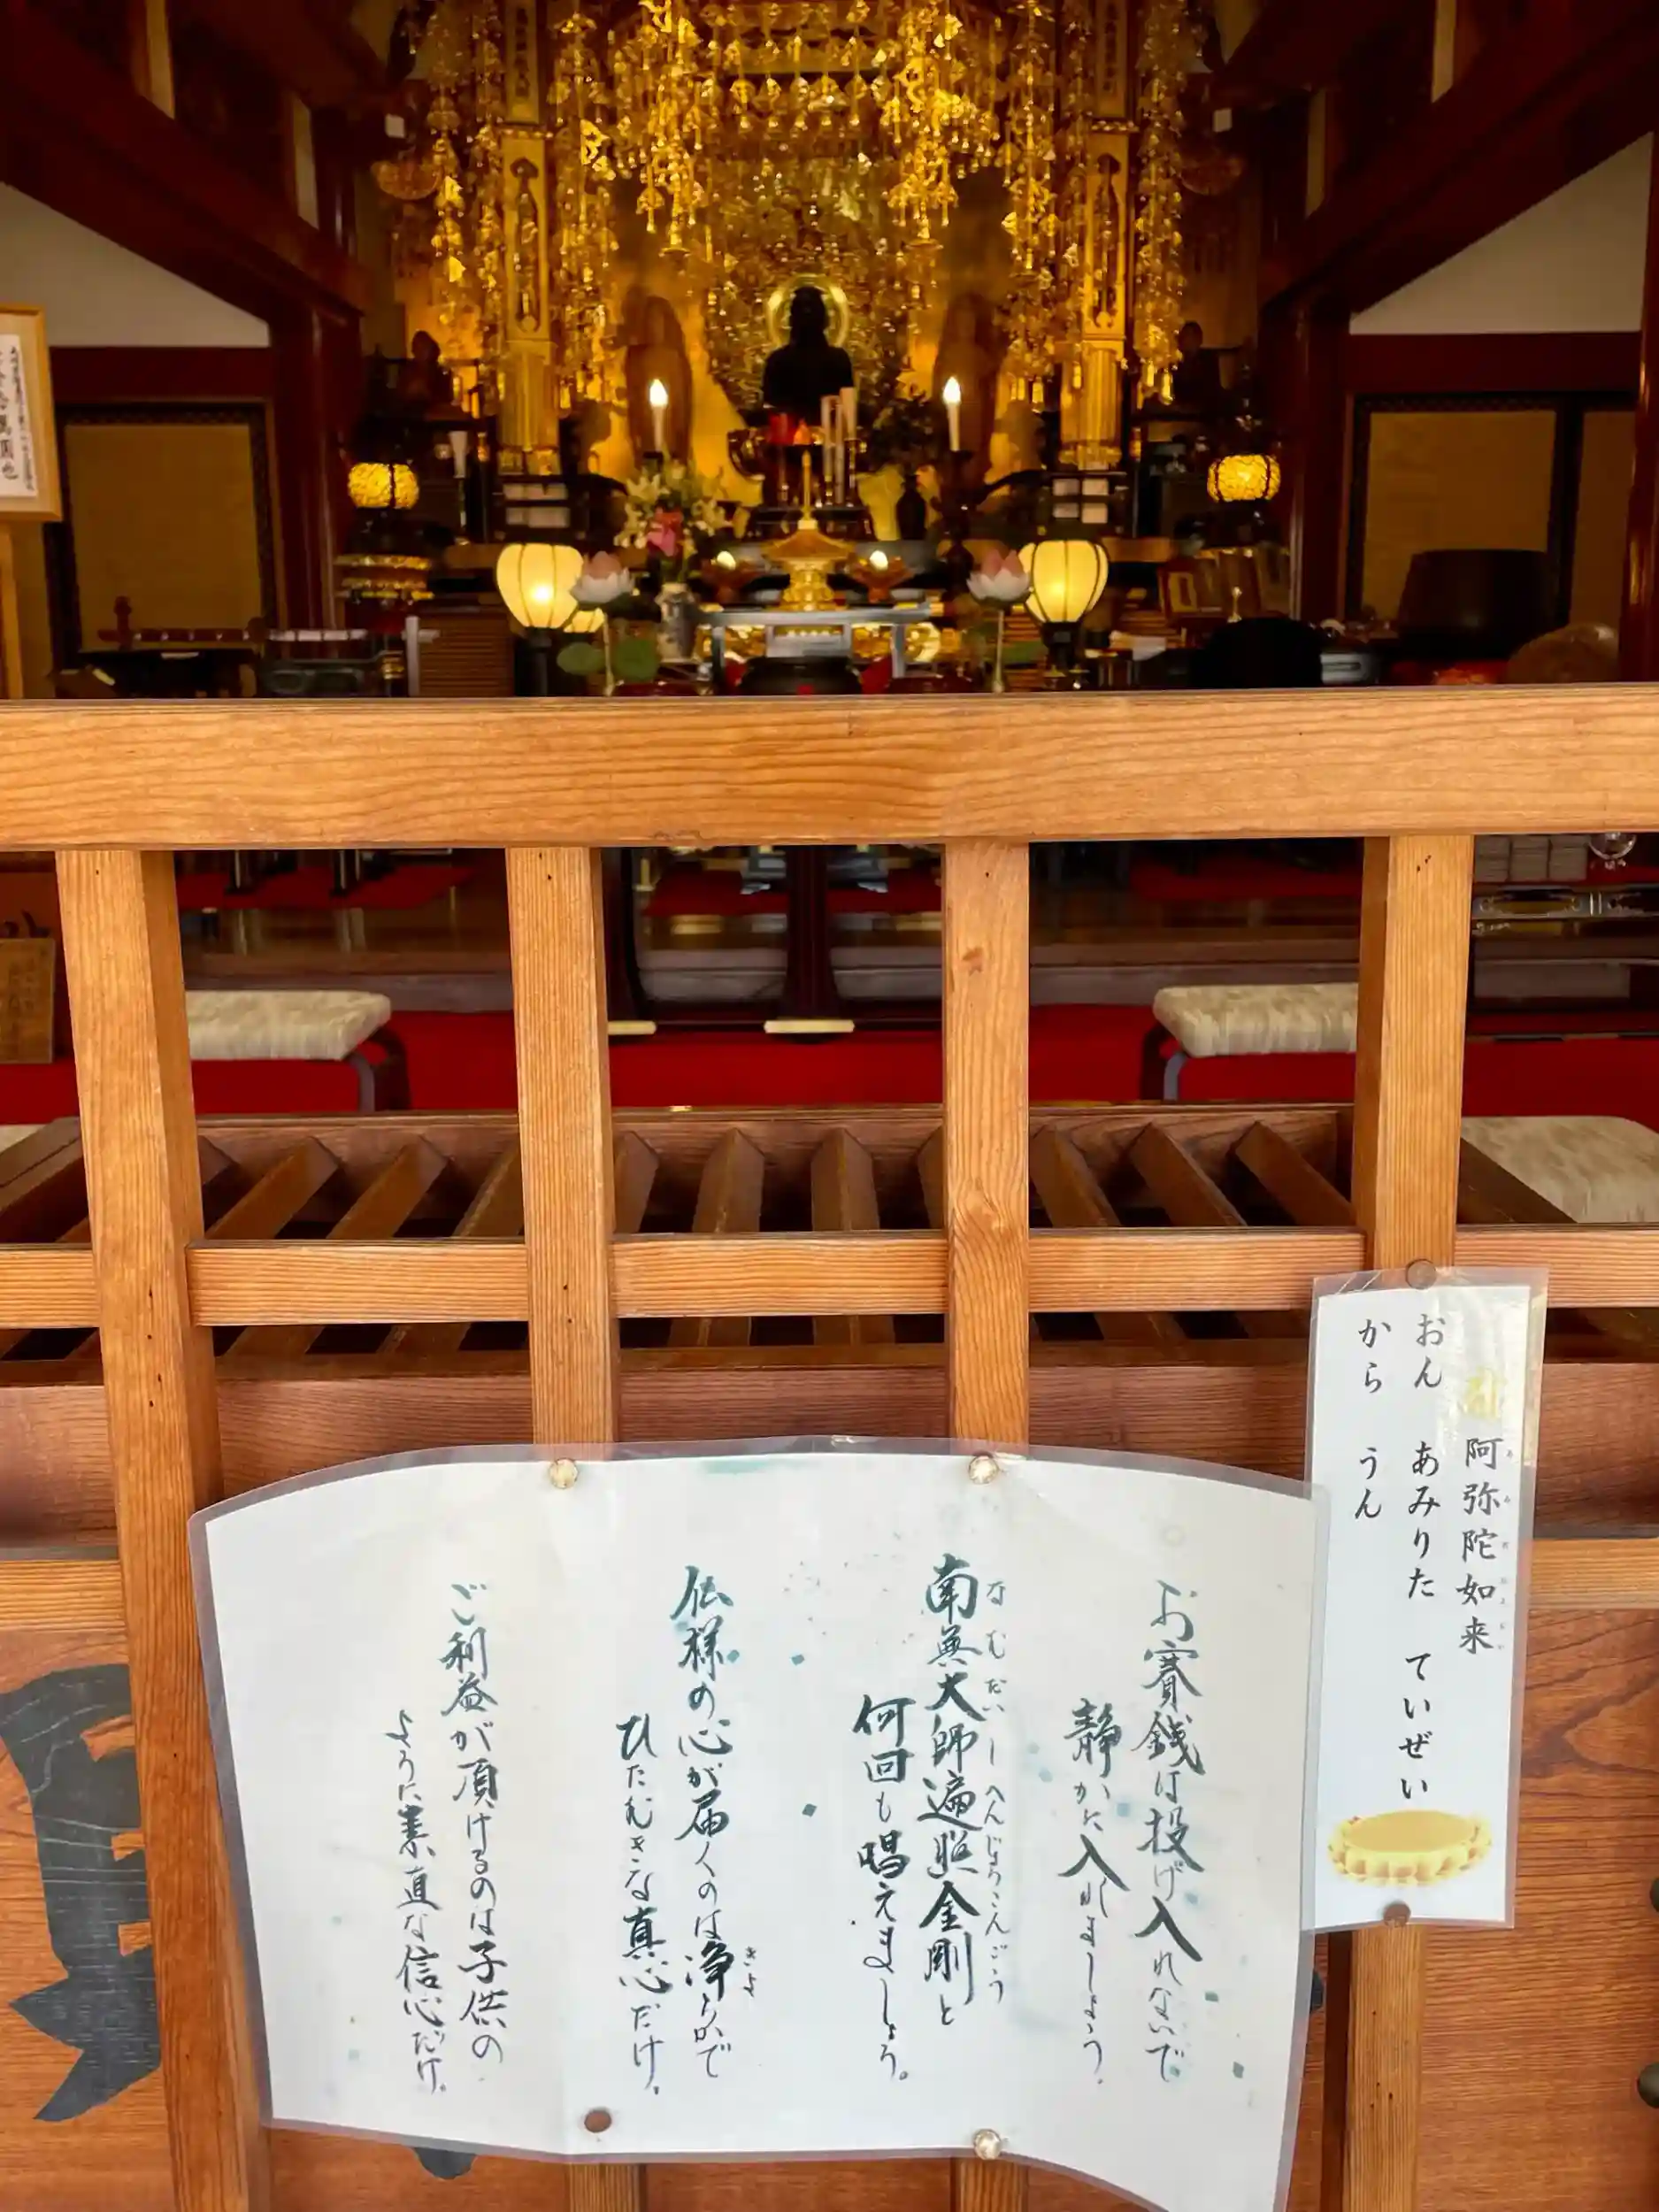 阿弥陀如来
おん　あみりた　ていぜい
から　うん
お賽銭は投げ入れないで
静かに入れましょう。
南無大師遍照金剛と
なむだいしへんじょうこんごう
何回も唱えましょう。
仏様の心が届くのは浄らかで
きよ
ひたむきな真心だけ。
ご利益が頂けるのは子供の
ように素直な信心だけ。